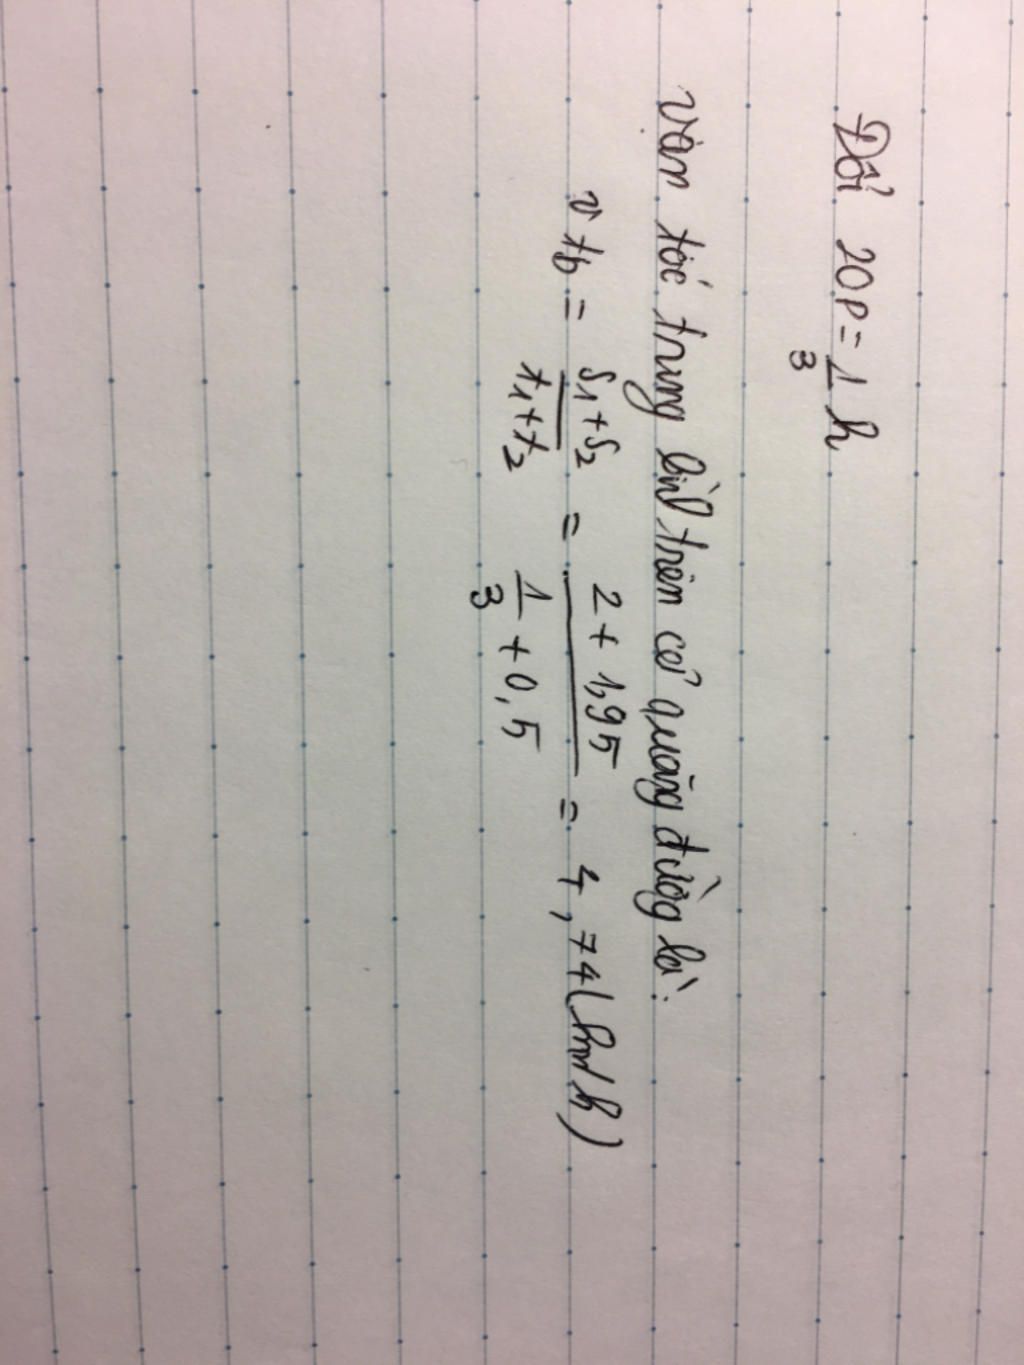 Đổi 20p = 1/3 h
Vận tốc trung bình trên cả quãng đường là:
vtb = s₁+s₂/t₁+t₂ = 2+1,95/1/3+0,5 = 4,74 (km/h)